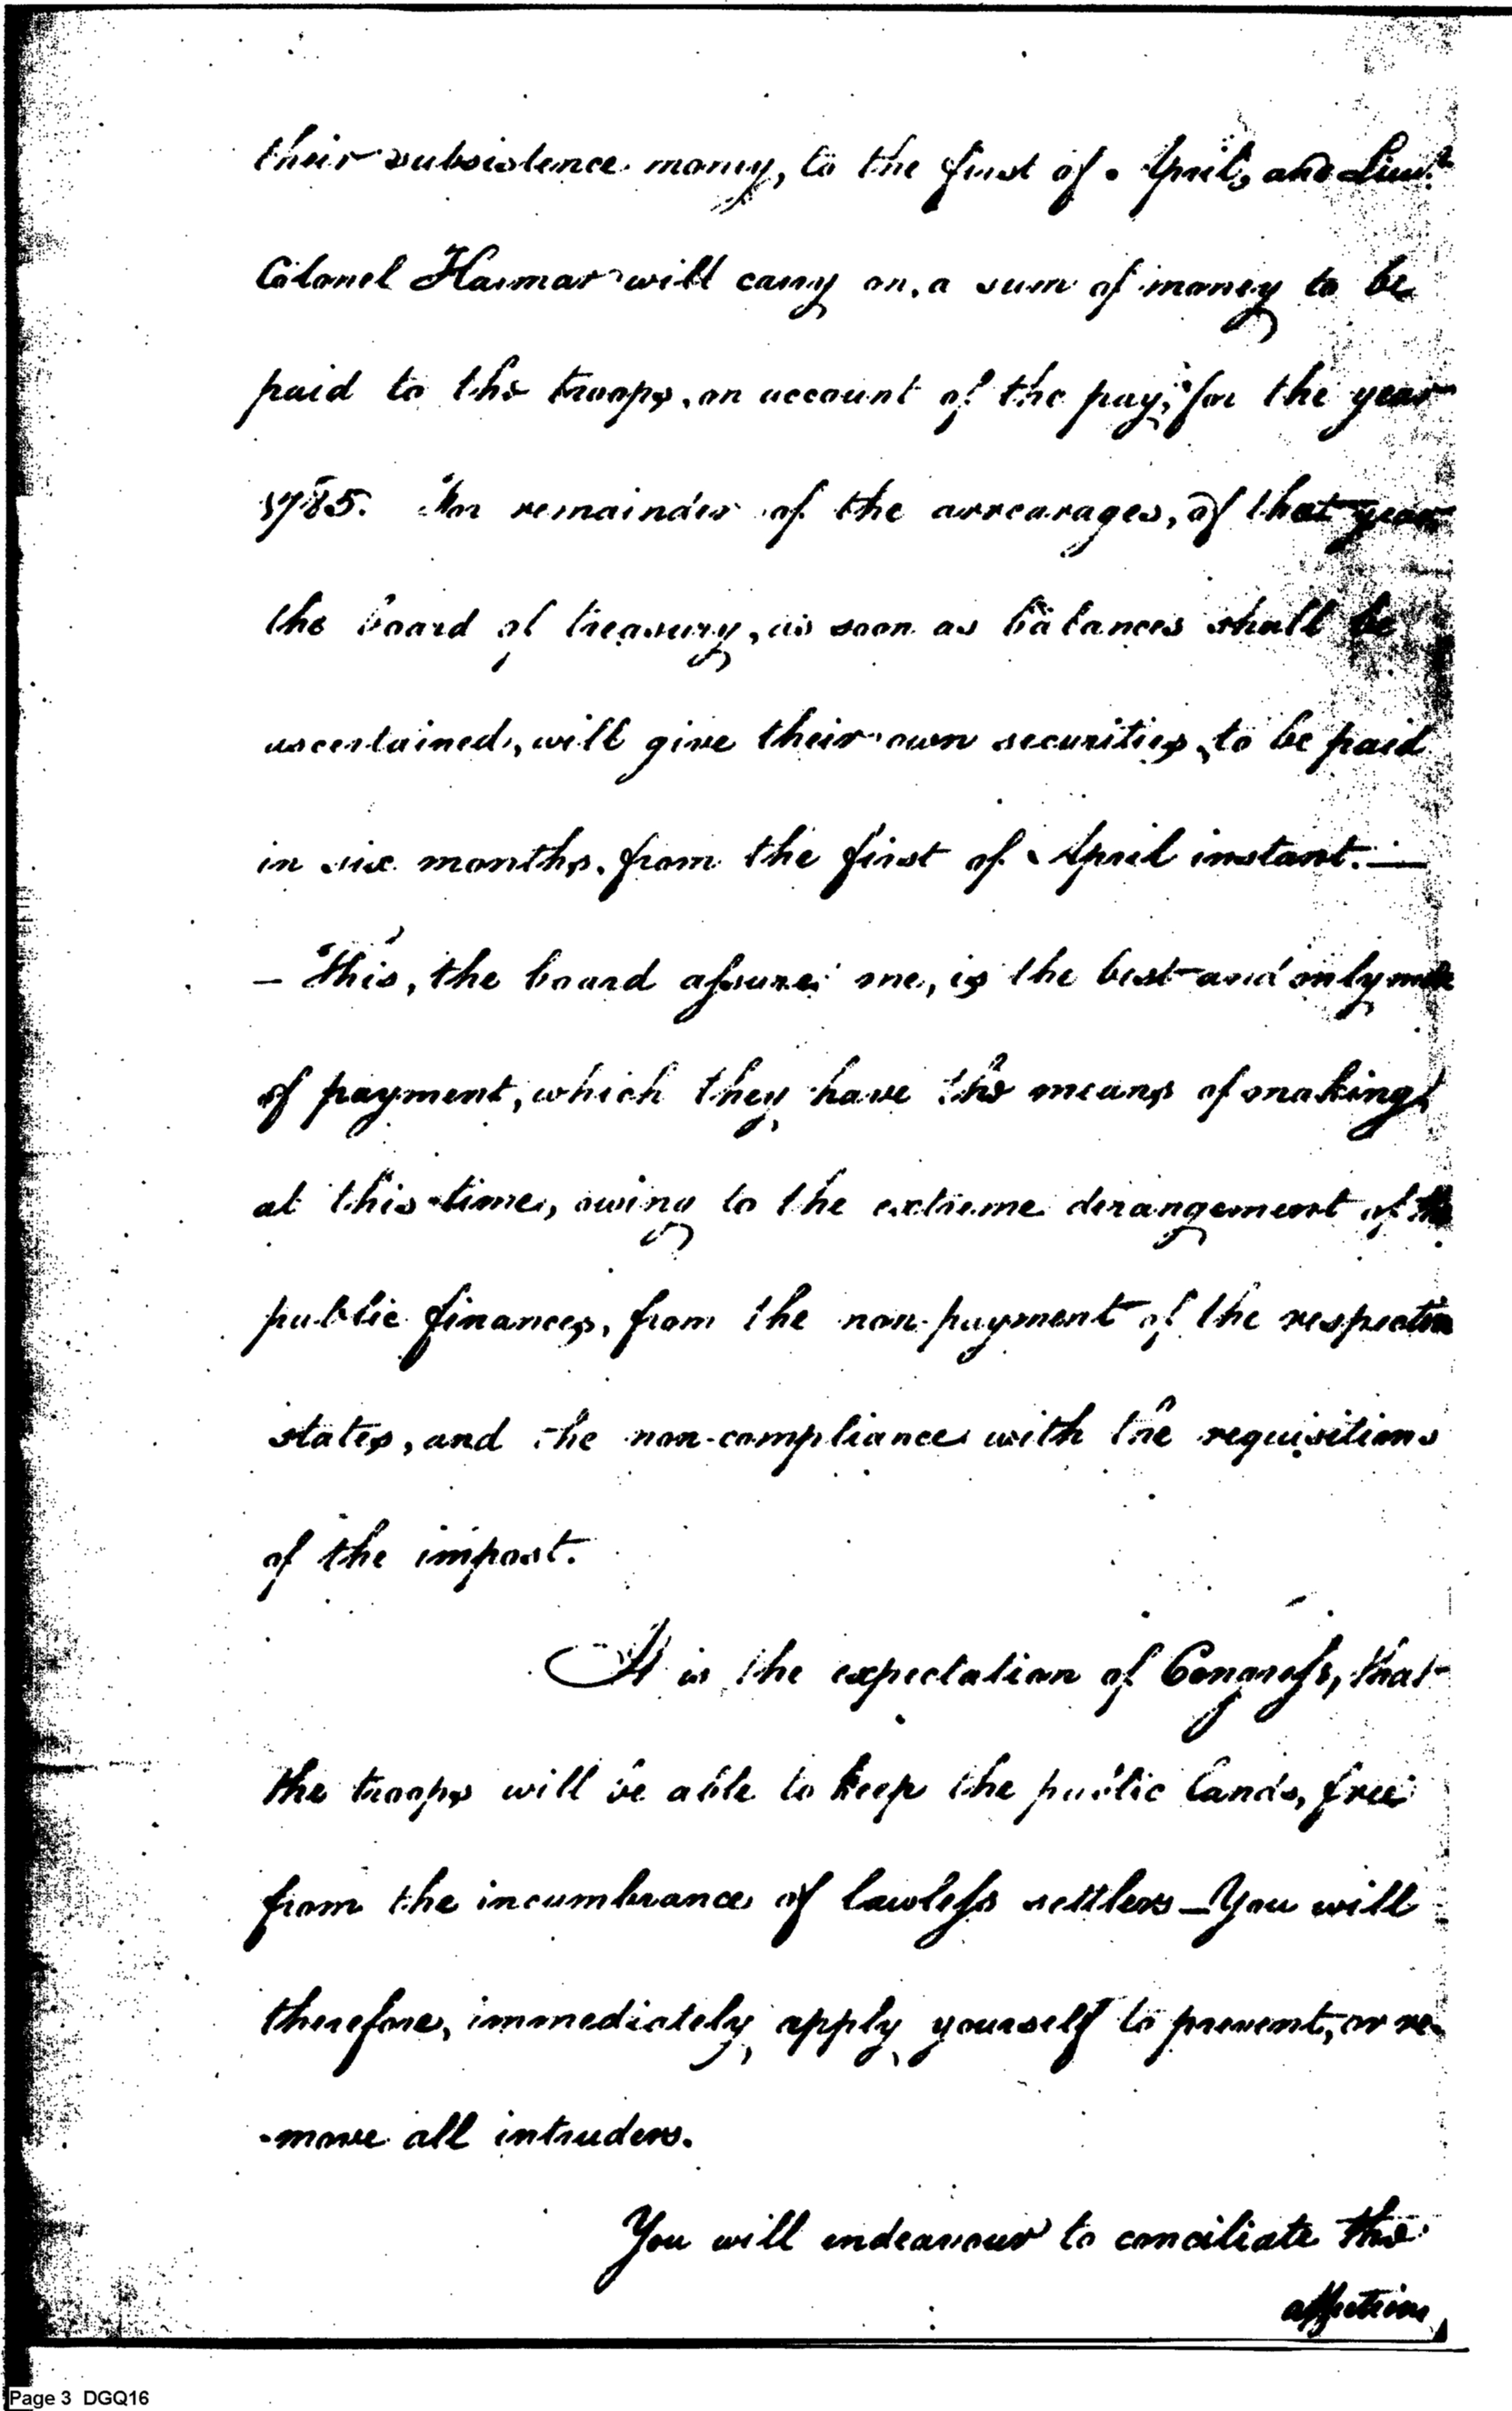 their subsistence money, to the first of April, and Lieut.
Colonel Harmar will carry on, a sum of money to be
paid to the troops, on account of the pay, for the year
1785. For remainder of the arrearages, of that year
the board of treasury, as soon as balances shall be
ascertained, will give their own securities, to be paid
in six months, from the first of April instant. —
— This, the board assures me, is the best and only mode
of payment, which they have the means of making,
at this time, owing to the extreme derangement of the
public finances, from the non-payment of the respective
states, and the non-compliance with the requisitions
of the impost.
It is the expectation of Congress, that
the troops will be able to keep the public lands, free
from the incumbrance of lawless settlers — You will
therefore, immediately, apply, yourself to prevent, or re-
-move all intruders.
You will endeavour to conciliate the
affection
Page 3 DGQ16